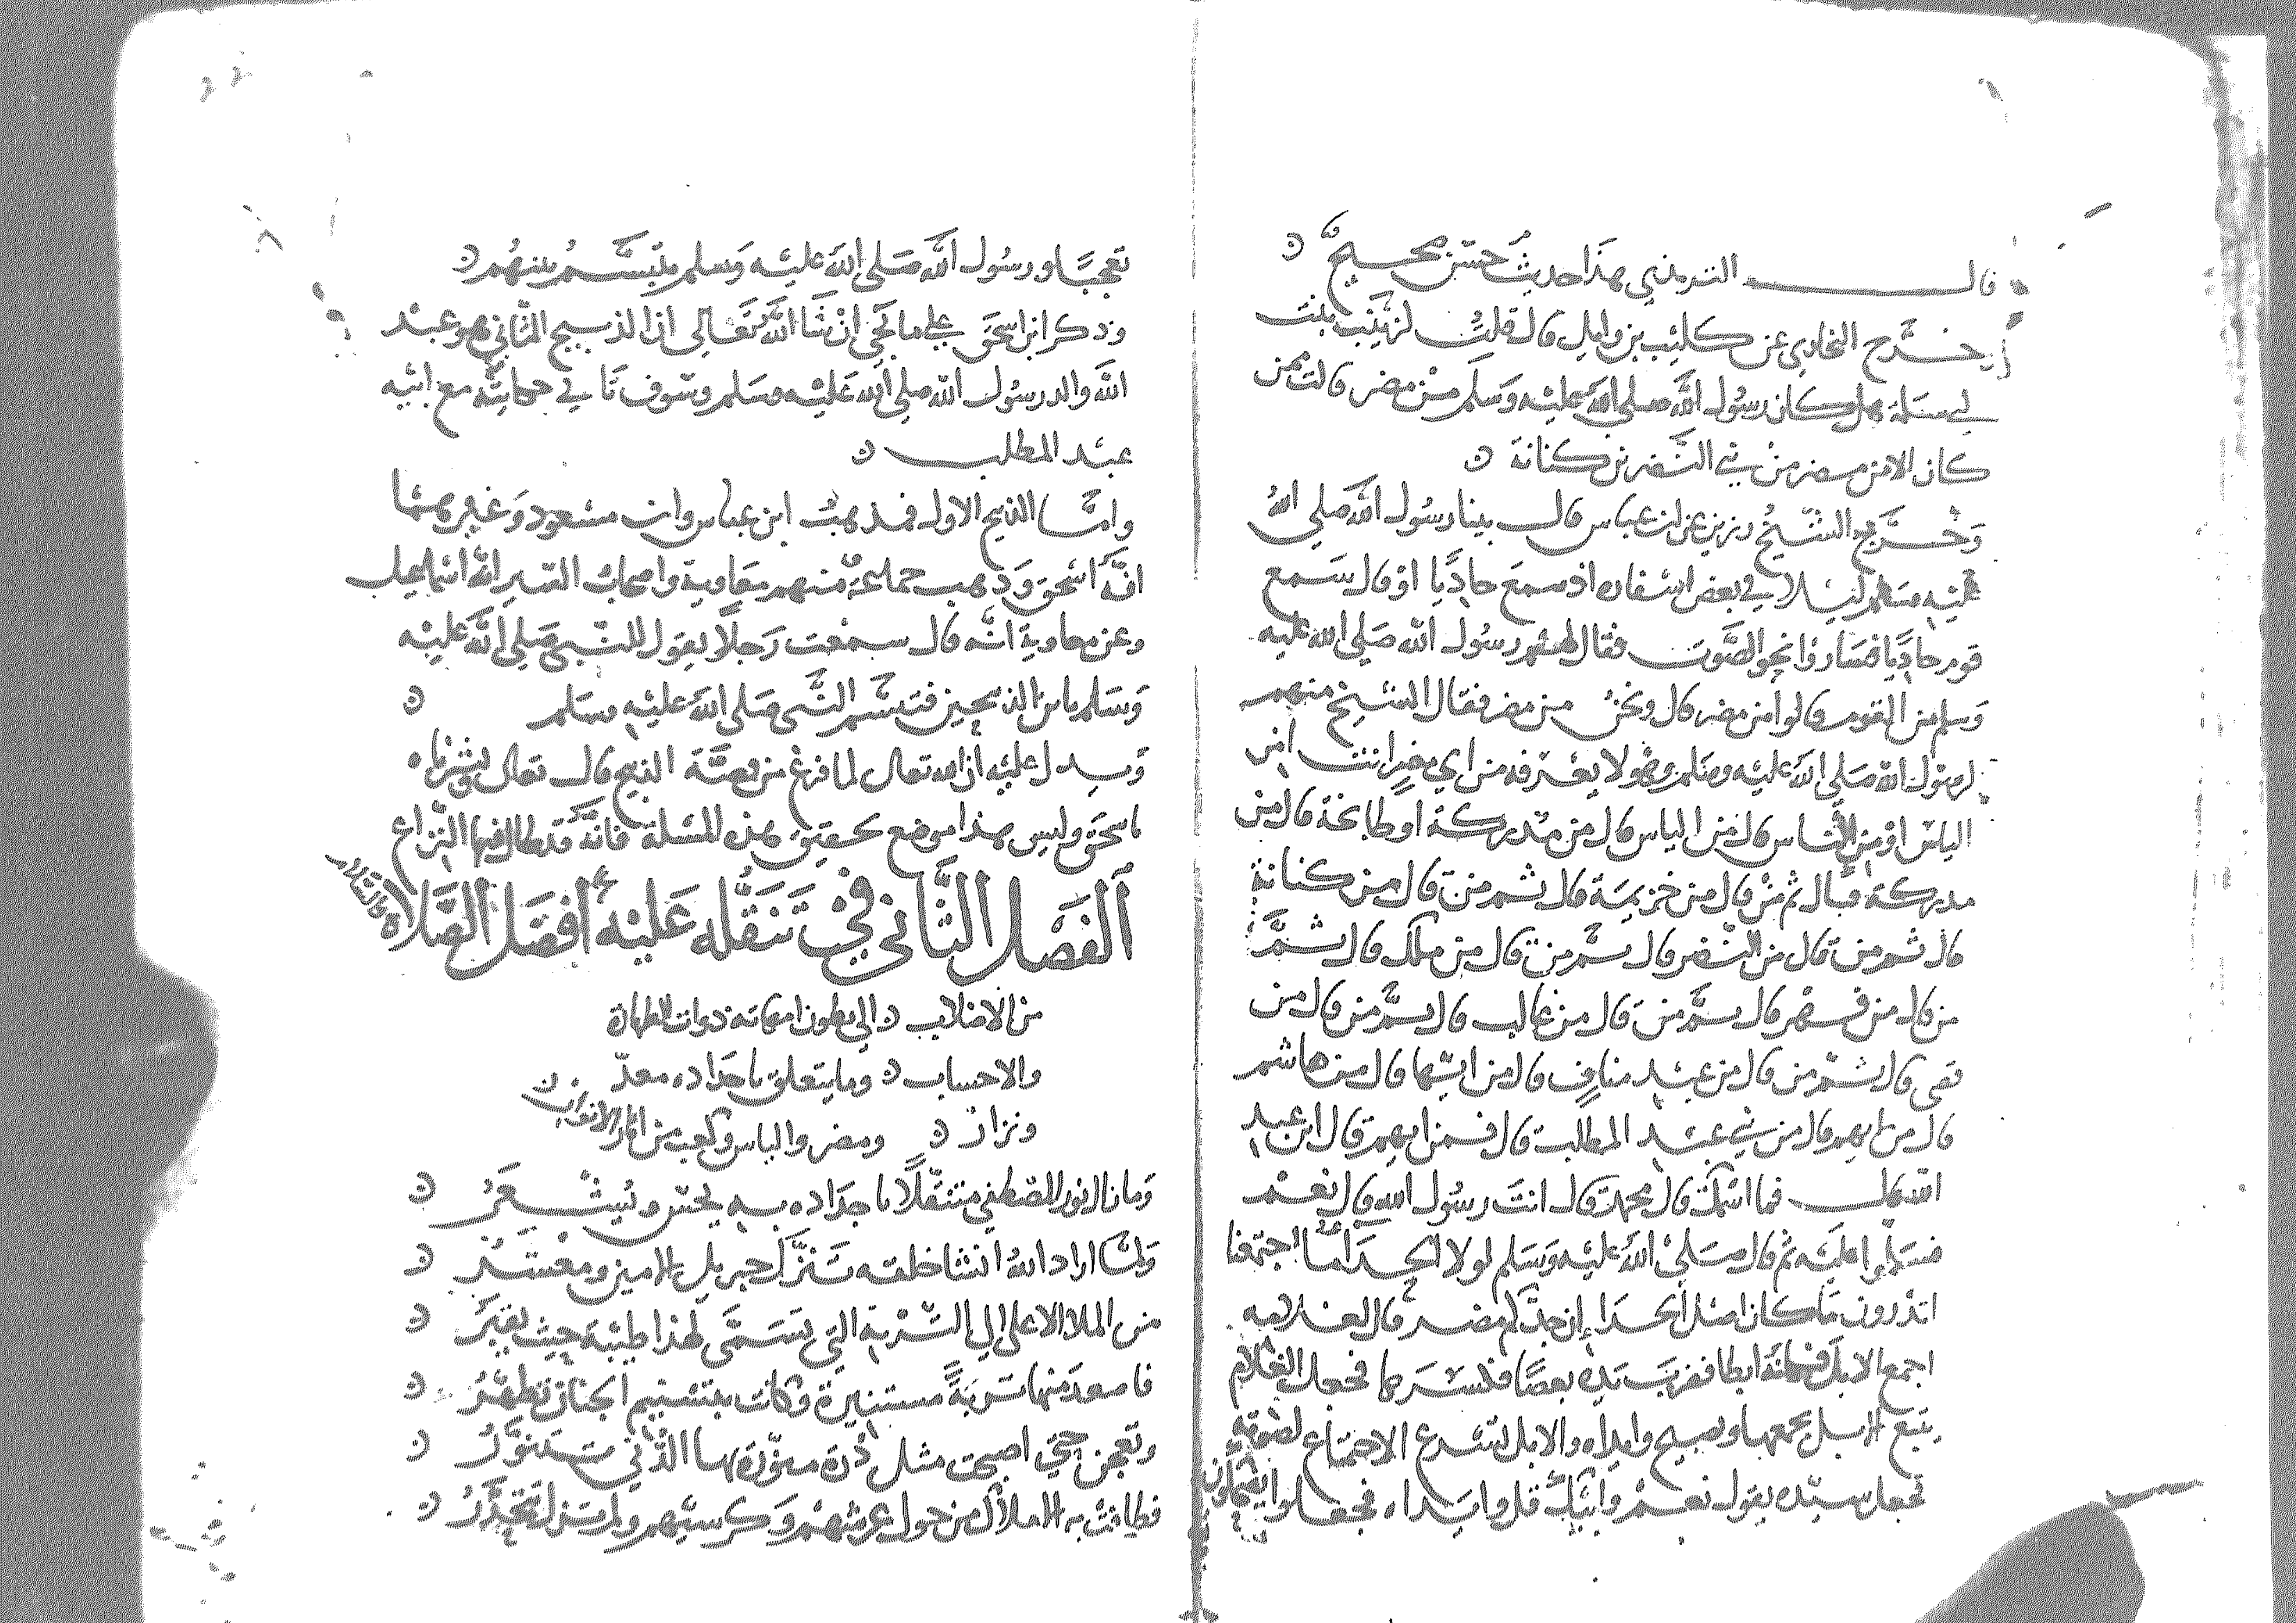 قال الترمذي هذا حديث حسن صحيح
وخرج البخاري عن كليب بن وايل قال قلت لزينب بنت
ابي سلمة هل كان رسول الله صلى الله عليه وسلم من مضر قالت فمن
كان الا من مضر من بني النضر بن كنانة
وخرج الشيخ رزين عن ابن عباس قال بينا رسول الله صلى الله
عليه وسلم ليلا في بعض اسفاره اذ سمع حاديا او قال سمع
قوم حاديا فساروا نحو الصوت فقال لهم رسول الله صلى الله عليه
وسلم من القوم قالوا من مضر قال ونحن من مضر فقال الشيخ منهم
لرسول الله صلى الله عليه وسلم وهو لا يعرفه من اي مضر انت امن
الياس او من الناس قال من الياس قال من مدركة او طابخة قال من
مدركة فقال ثم من قال من خزيمة قال ثم من قال من كنانة
قال ثم من قال من النضر قال ثم من قال من ملك قال ثم
من قال من فهر قال ثم من قال من غالب قال ثم من قال من
قصى قال ثم من قال من عبد مناف قال من ايها قال من هاشم
قال من ايهم قال من بني عبد المطلب قال فمن ايهم قال ابن عبد
الله قال فما اسمك قال محمد قال انت رسول الله قال نعم
فسلموا عليه ثم قال صلى الله عليه وسلم لولا الحدا ما اجتمعنا
اتدرون ما كان اصل الحدا ان جدكم مضر قال لغلامه
اجمع الابل فكانه ابطا فضرب يده بعصا فكسرها فجعل الغلام
يتبع الابل يجمعها ويصيح وايداه والابل تسرع الاجتماع لصوته
فجعل سيده يقول نعم وابيك قل وايداه فجعلوا يفعلون
تعجبا ورسول الله صلى الله عليه وسلم يتبسم بينهم
وذكر ابن اسحق على ما يجي ان شا الله تعالى ان الذبيح الثاني هو عبد
الله والد رسول الله صلى الله عليه وسلم وسوف تا في حكايته مع ابيه
عبد المطلب
واما الذبيح الاول فمذهب ابن عباس وابن مسعود وغيرهما
انه اسحق وذهب جماعة منهم معاوية واصحاب التفسير انه اسماعيل
وعن معاوية انه قال سمعت رجلا يقول للنبي صلى الله عليه
وسلم يا بن الذبيحين فتبسم النبي صلى الله عليه وسلم
ويدل عليه ان الله تعالى لما فرغ من قصة الذبيح قال تعالى وبشرناه
باسحق وليس هذا موضع تحقيق هذه المسئلة فانه قد طال فيها النزاع
الفصل الثاني في تنقله عليه افضل الصلاة والسلام
من الاصلاب الى بطون امهاته ذوات الطهارة
والاحساب وما يتعلق باجداده معد
ونزار ومضر والياس وكعب من
وما زال نور المصطفى متنقلا باجداده به يحس ويشعر
ولما اراد الله انشا خلقه تنزل جبريل الامين ومعشر
من الملا الاعلى الى التربة التي تسمى لهذا طيبة حيث يقبر
فاصعد منها تربة مستنيرة وكانت بتسنيم الجنان تطهر
وتعجن حتى اصبحت مثل درة منورة بها الذي يتنور
فطافت به الاملاك من حول عرشهم وكرسيهم ولم تزل تتحدر